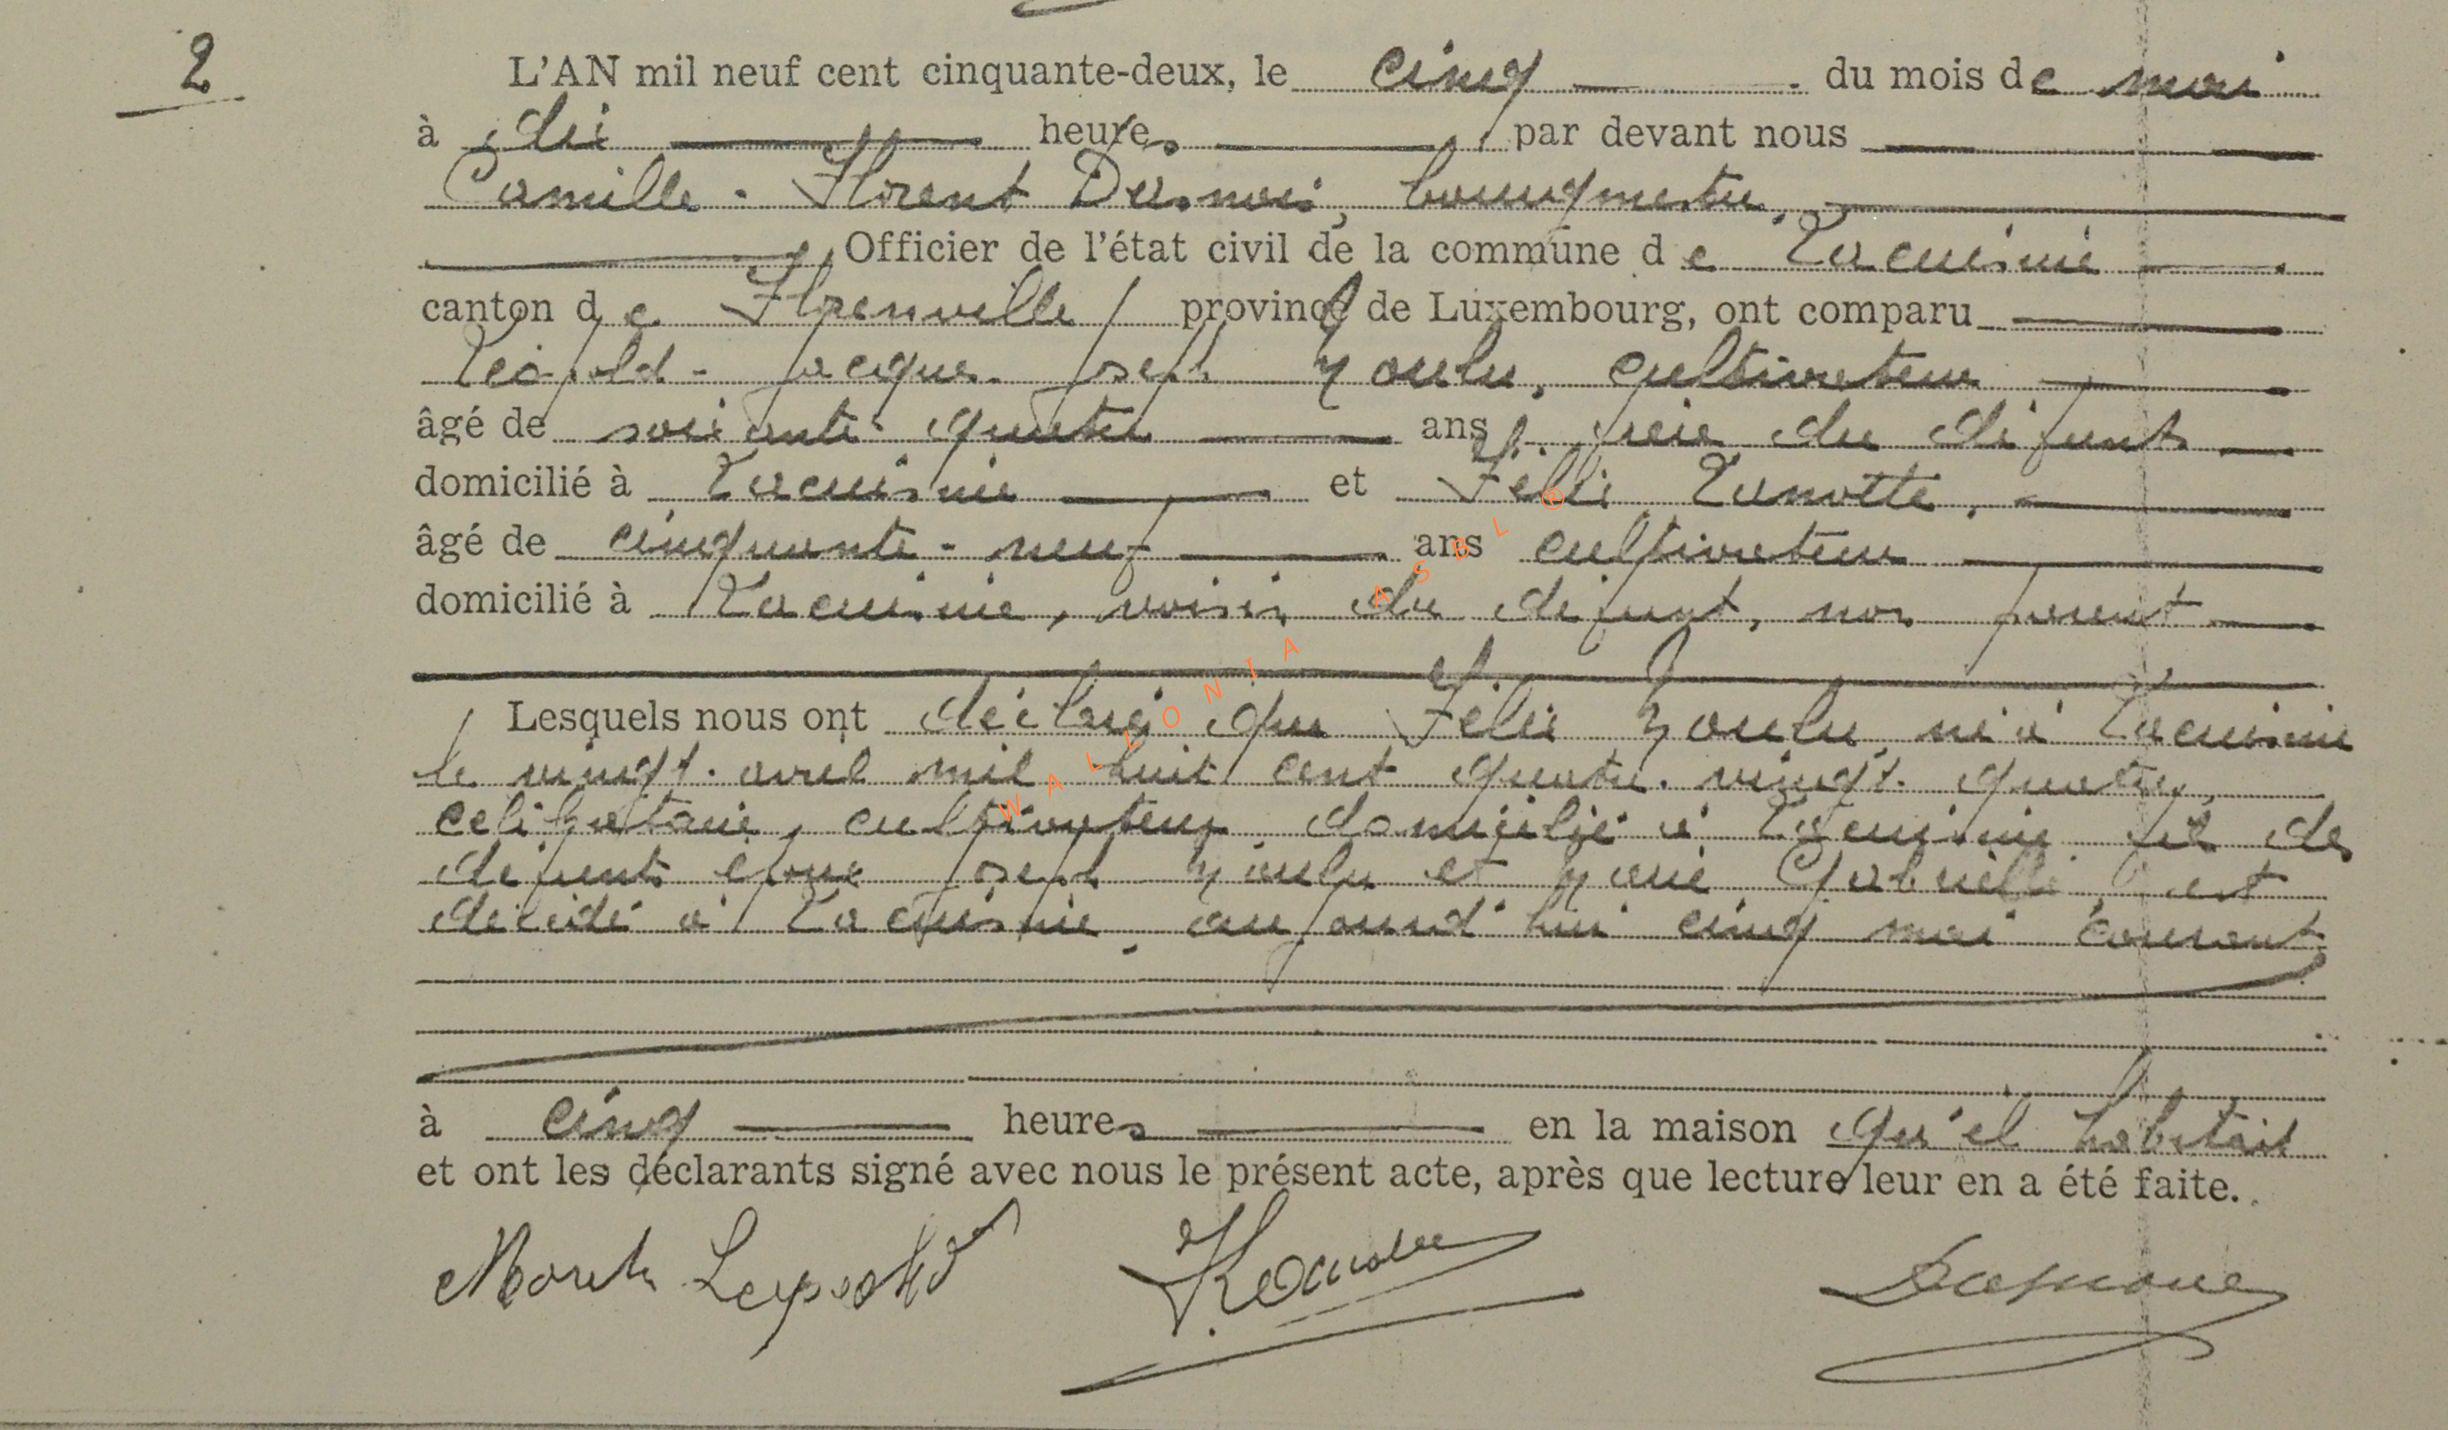 2
L'AN mil neuf cent cinquante-deux, le cinq du mois de mai
à dix heures par devant nous
Camille - Florent Dasnois, bourgmestre,
Officier de l'état civil de la commune de Lacuisine
canton de Florenville / province de Luxembourg, ont comparu
Léopold - Jacques - Joseph cultivateur
âgé de soixante-quatre ans, frère du défunt
domicilié à Lacuisine et Félix Lamotte,
âgé de cinquante-neuf ans cultivateur
domicilié à Lacuisine, voisin du défunt, non parent
Lesquels nous ont déclaré que Félix né à Lacuisine
le vingt-avril mil huit cent quatre-vingt-quatre,
célibataire, cultivateur domicilié à Lacuisine fils des
défunts époux Joseph et Marie Gabrielle, est
décédé à Lacuisine, aujourd'hui cinq mai courant
à cinq heures en la maison qu'il habitait
et ont les déclarants signé avec nous le présent acte, après que lecture leur en a été faite.
Leopold
WALLONIA ASBL ©